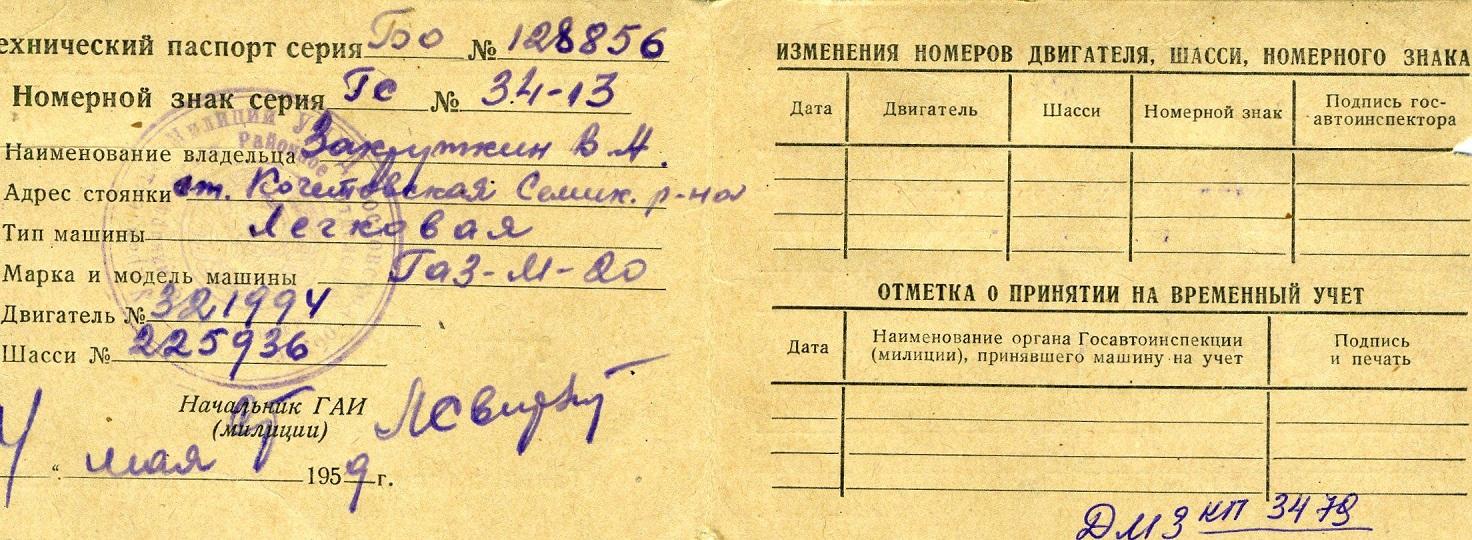 ехнический паспорт серия БО № 128856
Номерной знак серия ГС № 34-13
Наименование владельца Закруткин В А.
Адрес стоянки ст. Кочетовская Семик. р-на
Тип машины Легковая
Марка и модель машины ГАЗ-М-20
Двигатель № 321994
Шасси № 225936
Начальник ГАИ
(милиции)
4 " мая 1959 г.
ИЗМЕНЕНИЯ НОМЕРОВ ДВИГАТЕЛЯ, ШАССИ, НОМЕРНОГО ЗНАКА
Дата Двигатель Шасси Номерной знак Подпись гос-
автоинспектора
ОТМЕТКА О ПРИНЯТИИ НА ВРЕМЕННЫЙ УЧЕТ
Дата Наименование органа Госавтоинспекции
(милиции), принявшего машину на учет
Подпись
и печать
ДМЗ КП 3479